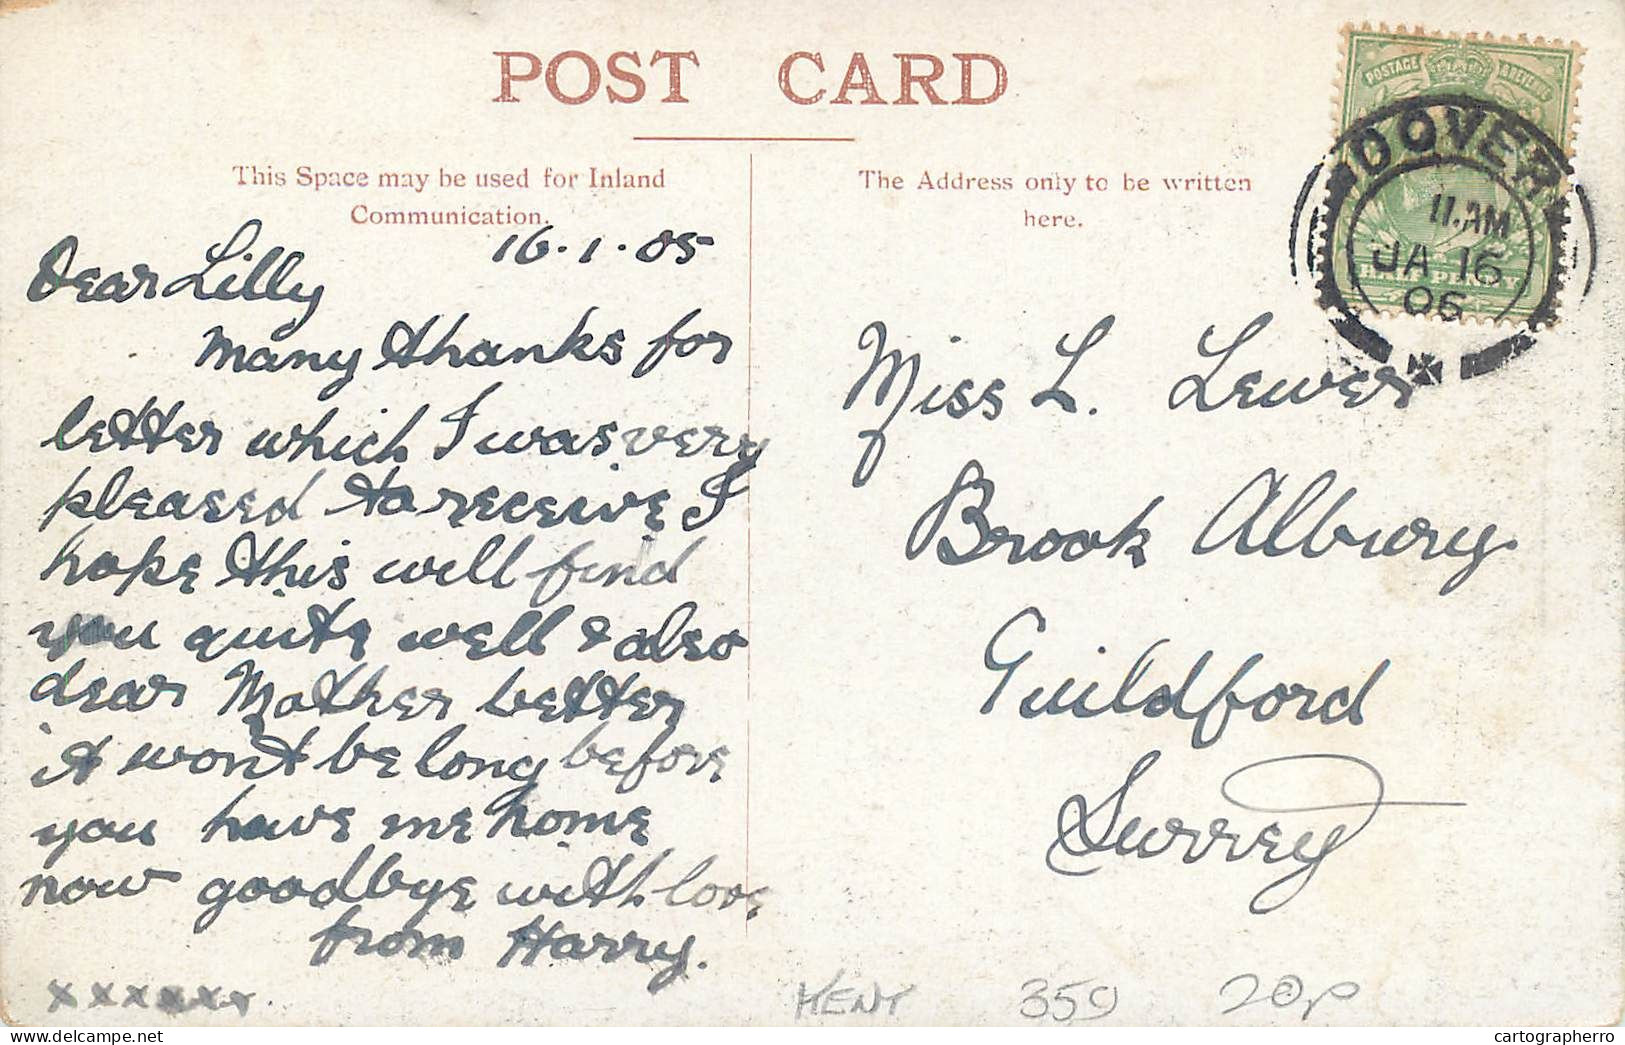 POST CARD
This Space may be used for Inland
Communication.
The Address only to be written
here.
POSTAGE & REVENUE
HALFPENNY
DOVER
11.AM
JA 16
06
16.1.05
Dear Lilly
Many thanks for
letter which I was very
pleased to receive I
hope this will find
you quite well & also
dear Mother better
it wont be long before
you have me home
now goodbye with love
from Harry.
xxxxxx
Miss L. Lewer
Brook Albury
Guildford
Surrey
KENT 359 20p
cartographerro